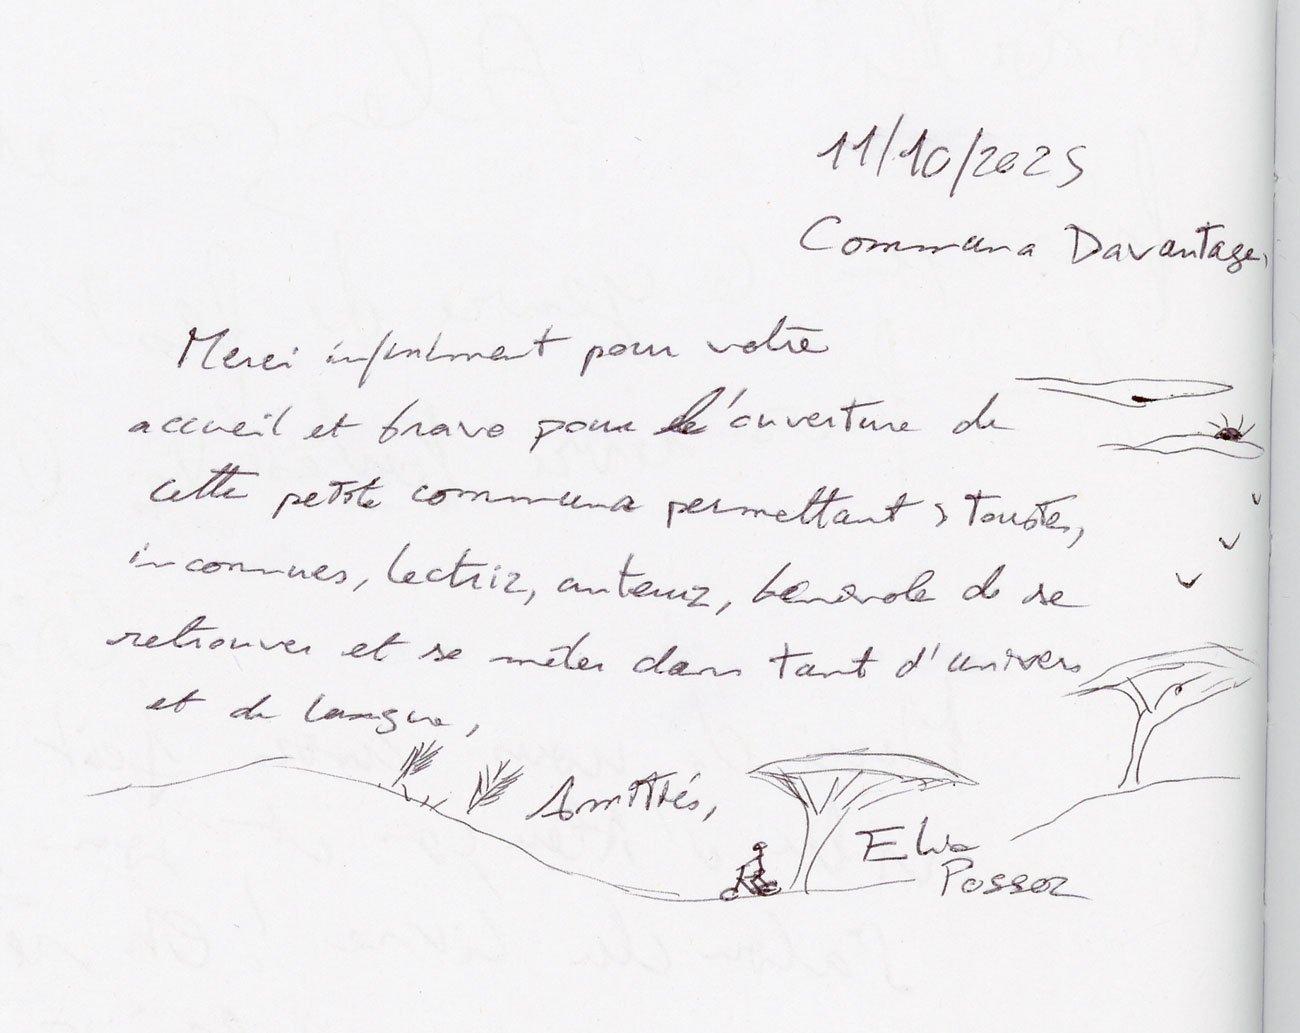 11/10/2025
Communa Davantage,
Merci infiniment pour votre
accueil et bravo pour l'ouverture de
cette petite communa permettant à toustes,
inconnues, lectriz, auteurz, bénévole de se
retrouver et se mêler dans tant d'univers
et de langue,
Amitiés,
Elisa
Possoz